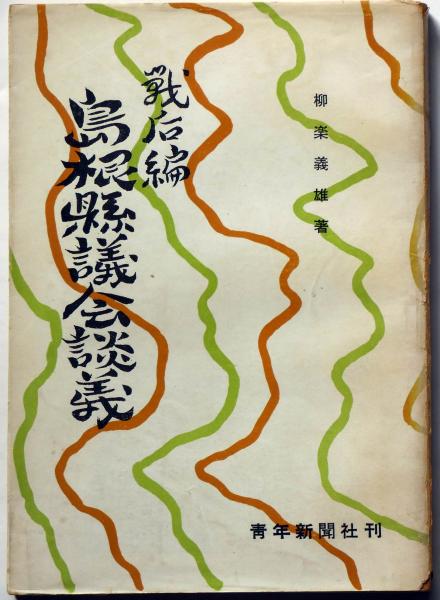 柳楽義雄著
戦后編
島根縣議会談義
青年新聞社刊